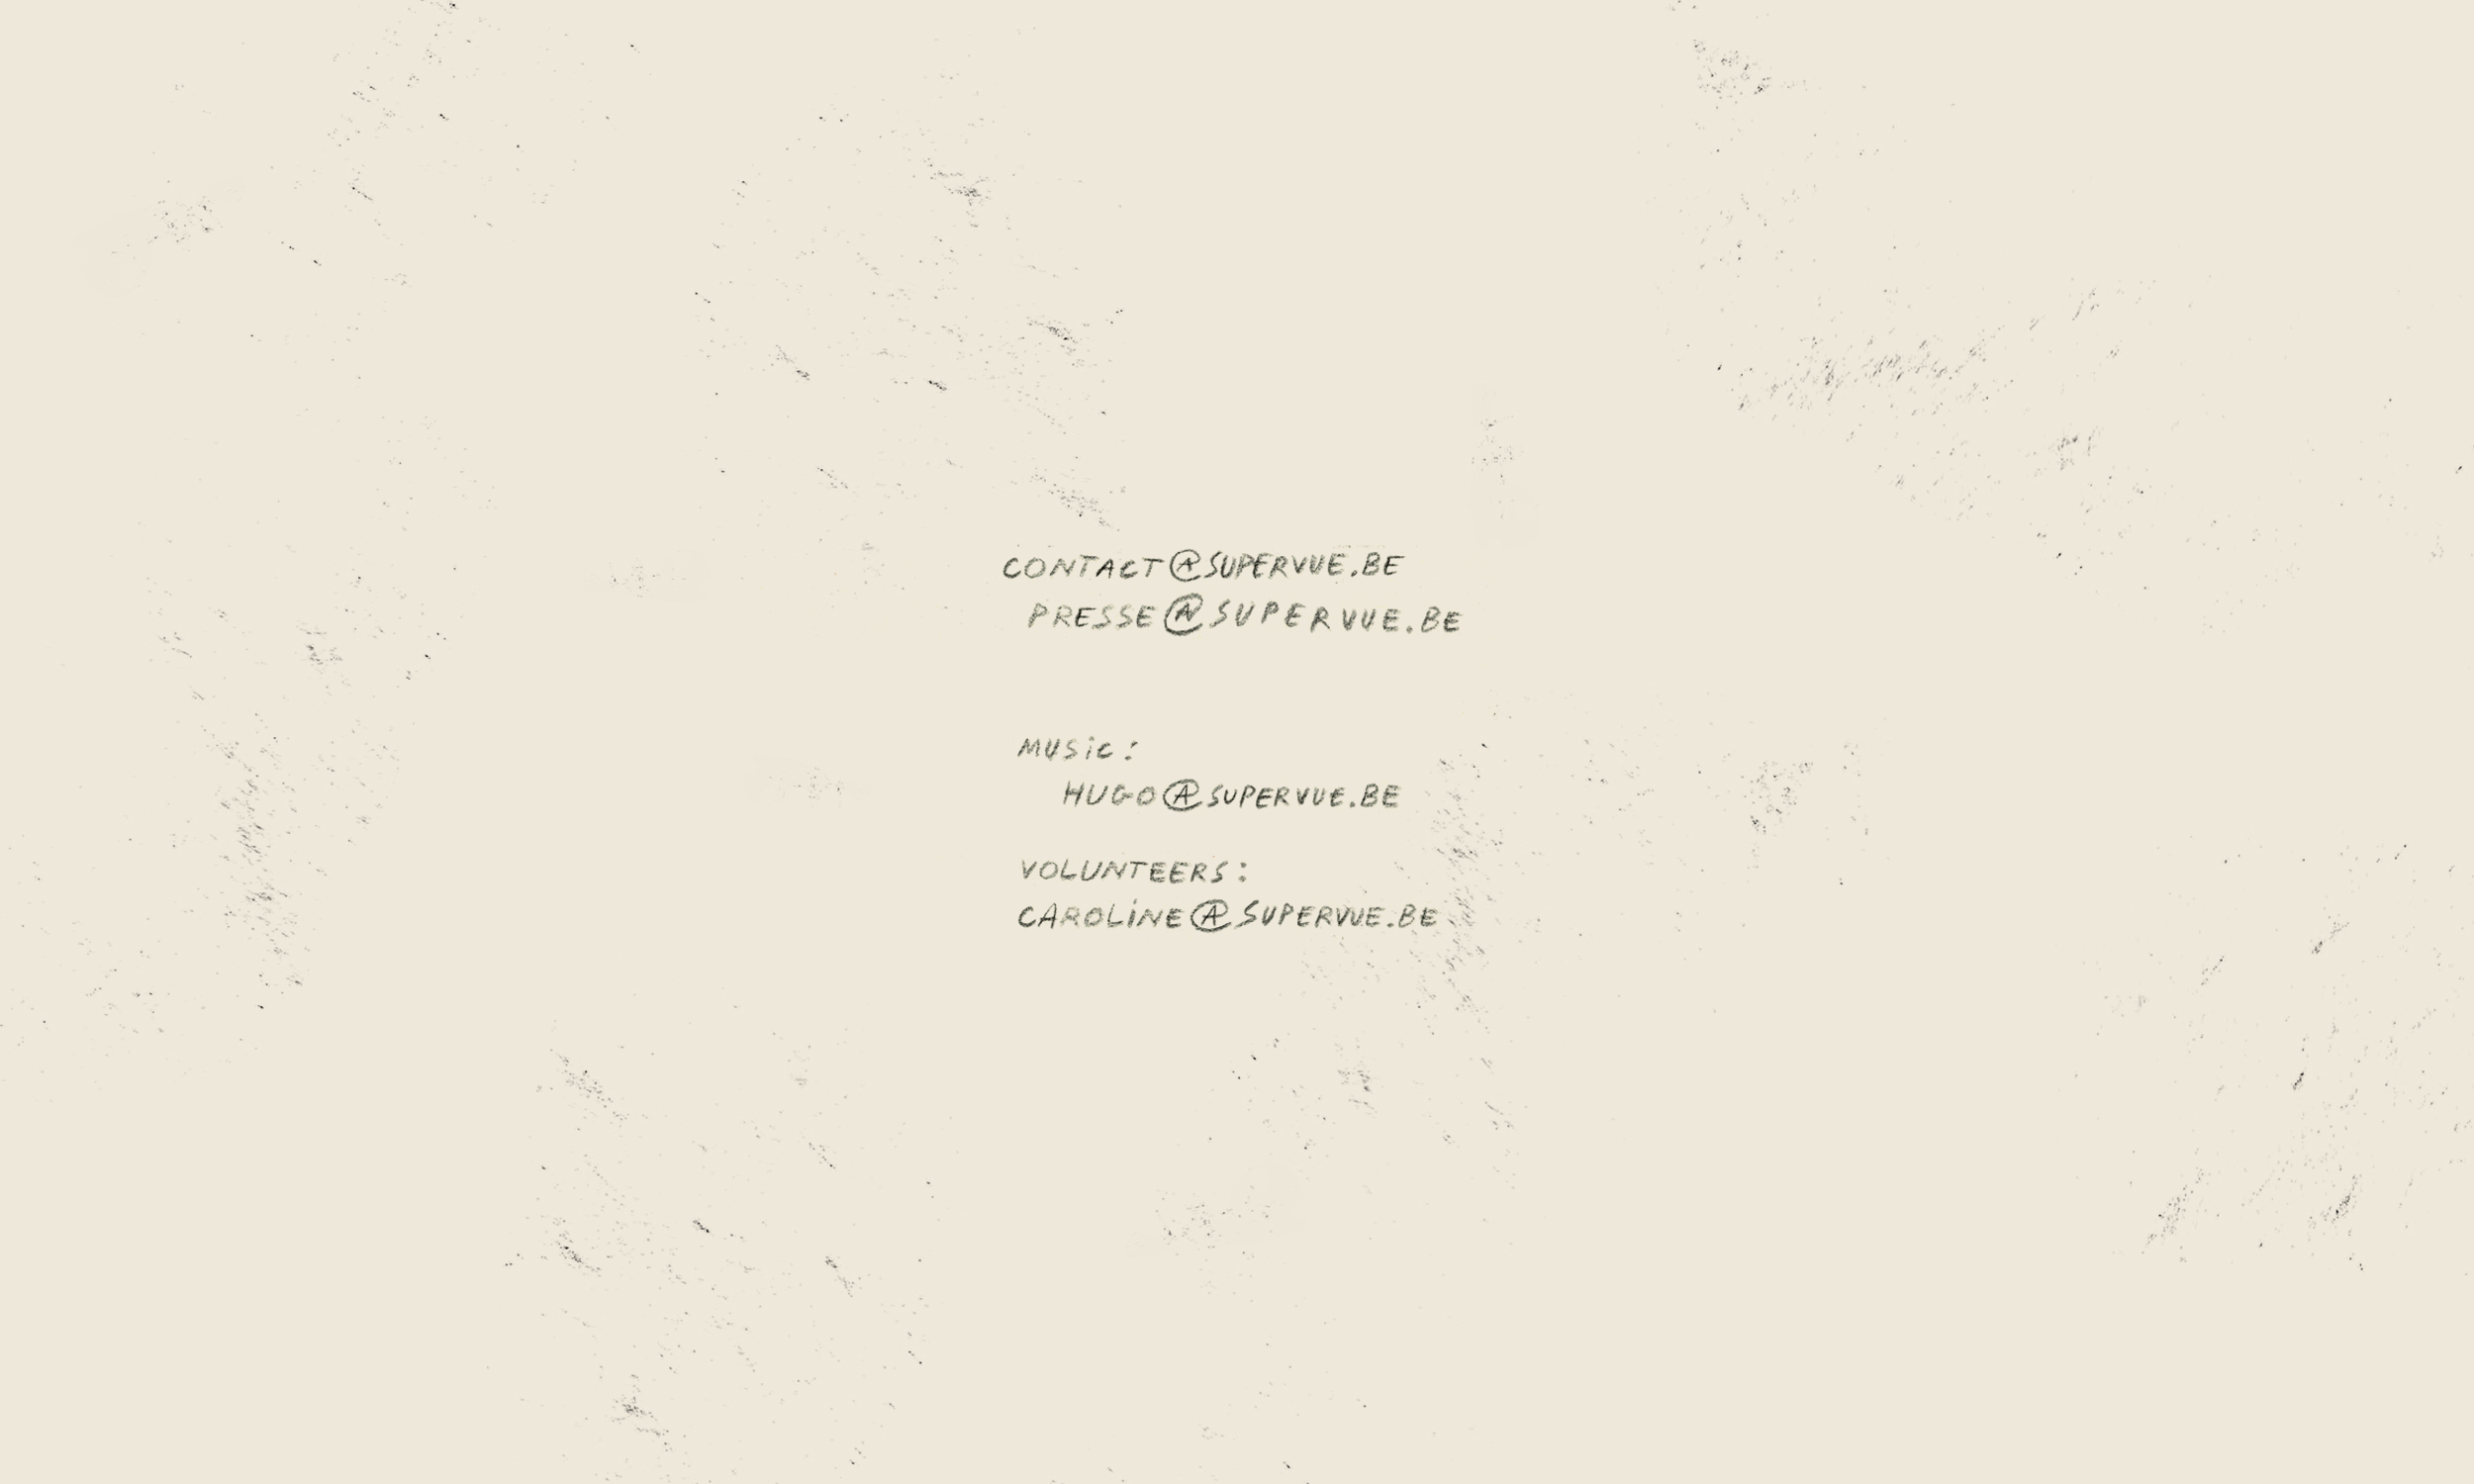 CONTACT@SUPERVUE.BE
PRESSE@SUPERVUE.BE
MUSiC:
HUGO@SUPERVUE.BE
VOLUNTEERS:
CAROLiNE@SUPERVUE.BE